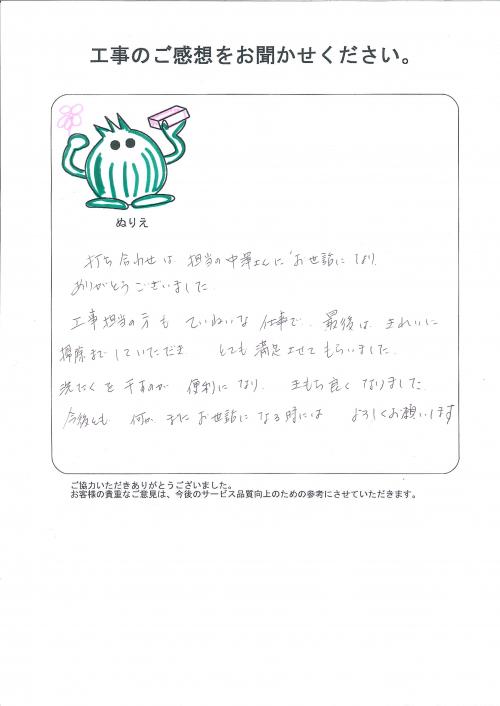 工事のご感想をお聞かせください。
ぬりえ
打ち合わせは 担当の中澤さんにお世話になり
ありがとうございました。
工事担当の方も ていねいな仕事で、最後は きれいに
掃除までしていただき とても満足させてもらいました。
洗たくを干すのが 便利になり、 気もち良くなりました。
今後とも 何か またお世話になる時には よろしくお願いします
ご協力いただきありがとうございました。
お客様の貴重なご意見は、今後のサービス品質向上のための参考にさせていただきます。